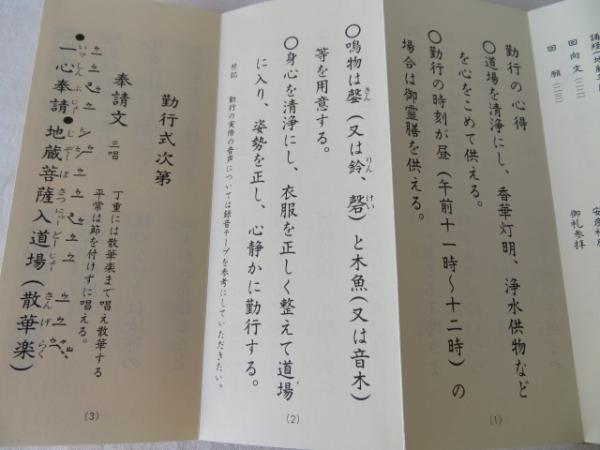 回向文(二二)
回願(二三)
御札参拝
勤行の心得
○道場を清浄にし、香華灯明、浄水供物など
を心をこめて供える。
○勤行の時刻が昼(午前十一時〜十二時)の
場合は御霊膳を供える。
(1)
○鳴物は鏧(又は鈴、磬)と木魚(又は音木)
きん
りん
けい
等を用意する。
○身心を清浄にし、衣服を正しく整えて道場
に入り、姿勢を正し、心静かに勤行する。
付記 勤行の実修の音声については録音テープを参考にしていただきたい。
(2)
勤行式次第
奉請文 三唱
丁重には散華楽まで唱え散華する
平常は節を付けずに唱える。
●一心奉請●地蔵菩薩入道場(散華楽)
いッしんぶじょう
じぞうぼさつにゅうどーじょー
さんげらく
(3)